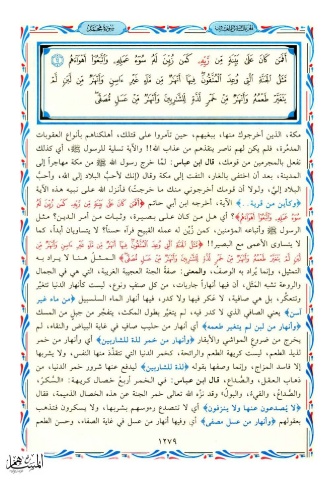 سورة محمد
أَفَمَن كَانَ عَلَىٰ بَيِّنَةٍ مِّن رَّبِّهِ كَمَن زُيِّنَ لَهُ سُوءُ عَمَلِهِ وَاتَّبَعُوا أَهْوَاءَهُم
مَّثَلُ الْجَنَّةِ الَّتِي وُعِدَ الْمُتَّقُونَ فِيهَا أَنْهَارٌ مِّن مَّاءٍ غَيْرِ ءَاسِنٍ وَأَنْهَارٌ مِّن لَّبَنٍ لَّمْ
يَتَغَيَّرْ طَعْمُهُ وَأَنْهَارٌ مِّنْ خَمْرٍ لَّذَّةٍ لِّلشَّارِبِينَ وَأَنْهَارٌ مِّنْ عَسَلٍ مُّصَفًّى
مكة، الذين أخرجوك منها، ببغيهم، حين تآمروا على قتلك، أهلكناهم بأنواع العقوبات
المدمرة، فلم يكن لهم ناصر ينقذهم من عذاب الله!! والآية تسلية للرسول ﷺ، أي كذلك
نفعل بالمجرمين من قومك، قال ابن عباس: لمّا خرج رسول الله ﷺ من مكة مهاجراً إلى
المدينة، بعد أن اختفى بالغار، التفت إلى مكة وقال (إنك لأحبُّ البلاد إلى الله، وأحبُّ
البلاد إليّ، ولولا أن قومك أخرجوني منك ما خرجت) فأنزل الله على نبيه هذه الآية
﴿وكأين من قرية..﴾ الآية، أخرجه ابن أبي حاتم ﴿أَفَمَن كَانَ عَلَىٰ بَيِّنَةٍ مِّن رَّبِّهِ كَمَن زُيِّنَ لَهُ
سُوءُ عَمَلِهِ وَاتَّبَعُوا أَهْوَاءَهُم﴾؟ أي هل من كان على بصيرة، وثبات من أمر الدين؟ مثل
الرسول ﷺ وأتباعه المؤمنين، كمن زُيّن له عمله القبيح فرآه حسناً؟ لا يتساويان أبداً، كما
لا يتساوى الأعمى مع البصير!! ﴿مَّثَلُ الْجَنَّةِ الَّتِي وُعِدَ الْمُتَّقُونَ فِيهَا أَنْهَارٌ مِّن مَّاءٍ غَيْرِ ءَاسِنٍ وَأَنْهَارٌ مِّن
لَّبَنٍ لَّمْ يَتَغَيَّرْ طَعْمُهُ وَأَنْهَارٌ مِّنْ خَمْرٍ لَّذَّةٍ لِّلشَّارِبِينَ وَأَنْهَارٌ مِّنْ عَسَلٍ مُّصَفًّى﴾ المثل هنا لا يراد به
التمثيل، وإنما يُراد به الوصف، والمعنى: صفة الجنة العجيبة الغريبة، التي هي في الجمال
والروعة تشبه المثل، أن فيها أنهاراً جاريات، من كل صنف ونوع، ليست كأنهار الدنيا تتغير
وتتعكّر، بل هي صافية، لا عكر فيها ولا كدر، فيها أنهار الماء السلسبيل ﴿من ماء غير
آسن﴾ يعني الصافي الذي لا كدر فيه، لم يتغيّر بطول المكث، يتفجّر من جبل من المسك
﴿وأنهار من لبن لم يتغير طعمه﴾ أي أنهار من حليب صافٍ في غاية البياض والنقاء، لم
يخرج من ضروع المواشي والأبقار ﴿وأنهار من خمر لذة للشاربين﴾ أي وأنهار من خمر
لذيذ الطعم، ليست كريهة الطعم والرائحة، كخمر الدنيا التي تتقذّر منها النفس، ولا يشربها
إلا فاسد المزاج، وإنما وصفها بقوله ﴿لذة للشاربين﴾ ليدفع عنها شرور خمر الدنيا، من
ذهاب العقل، والصُّداع، قال ابن عباس: في الخمر أربع خصال كريهة: «السُّكرُ،
والصُّداعُ، والقيءُ، والبولُ» وقد نزّه الله تعالى خمر الجنة عن هذه الخصال الذميمة، فقال
﴿لا يصدعون عنها ولا ينزفون﴾ أي لا تتصدع رءوسهم بشربها، ولا يسكرون فتذهب
بعقولهم ﴿وأنهار من عسل مصفى﴾ أي وفيها أنهار من عسل في غاية الصفاء، وحسن الطعم
١٢٧٩